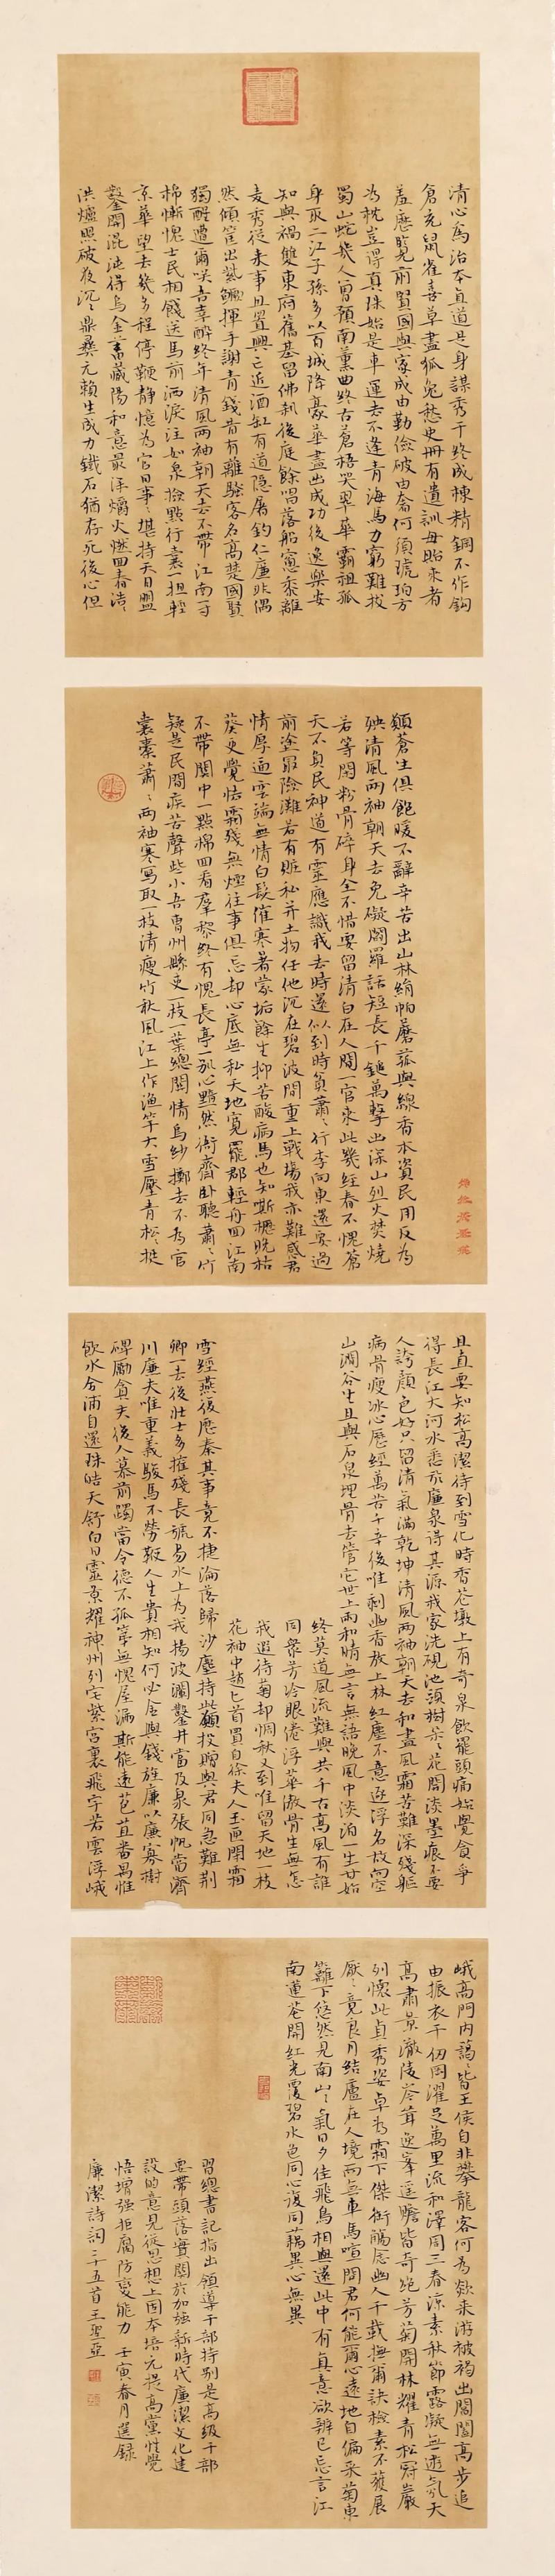 清心為治本直道是身謀秀干終成棟精鋼不作鈎
倉充鼠雀喜草盡狐兔愁史冊有遺訓毋貽來者
羞歷覽前賢國與家成由勤儉破由奢何須琥珀方
為枕豈得真珠始是車運去不逢青海馬力窮難拔
蜀山蛇幾人曾預南薰曲終古蒼梧哭翠華霸祖孤
身取二江子孫多以百城降豪華盡出成功後逸樂安
知與禍雙東府舊基留佛刹後庭餘唱落船窻黍離
麦秀從來事且置興亡近酒缸有道隱屠釣仁廉非偶
然傾筐出鰲鱖揮手謝青錢昔有離騷客名高楚國賢
獨醒遭爾咲吾幸醉終年清風兩袖朝天去不帶江南一寸
棉慚愧士民相餞送馬前洒淚注如泉檢點行囊一担輕
京華望去幾多程停鞭静憶為官日事々堪持天日盟
鑿開混沌得烏金蓄藏陽和意最深爝火燃回春浩々
洪爐照破夜沉々鼎彝元賴生成力鐵石猶存死後心但
願蒼生俱飽暖不辭辛苦出山林絹帕蘑菰與線香本資民用反為
殃清風兩袖朝天去免礙閻羅話短長千鎚萬擊出深山烈火焚燒
若等閑粉骨碎身全不惜要留清白在人間一官來此幾經春不愧蒼
天不負民神道有靈應識我去時還似到時貧蕭々行李向東還要過
前塗最險灘若有贓私并土物任他沉在碧波間重上戰場我亦難感君
情厚逼雲端無情白髮催寒暑蒙垢餘生抑苦酸病馬也知嘶櫪晚枯
葵更覺怯霜殘無煙往事俱忘却心底無私天地寬罷郡輕舟回江南
不帶關中一點棉回看羣黎終有愧長亭一別心黯然衙齋卧聽蕭々竹
疑是民間疾苦聲些小吾曹州縣吏一枝一葉總關情烏紗擲去不為官
囊橐蕭々兩袖寒寫取一枝清瘦竹秋風江上作漁竿大雪壓青松々挺
且直要知松高潔待到雪化時香花墩上有奇泉飲罷頭痛始覺貪爭
得長江大河水悉爲廉泉得其源我家洗硯池頭樹朵々花開淡墨痕不要
人誇顏色好只留清氣滿乾坤清風兩袖朝天去和盡風霜苦難深殘軀
病骨瘦冰心歷經萬苦千辛後唯剩幽香放上林紅塵不意逐浮名故向空
山澗谷生且與石泉埋骨去管它世上雨和晴無言無語晚風中淡泊一生甘始
終莫道風流難與共千古高風有誰
同衆芳冷眼倦浮華傲骨生無怎
我遐待菊却惆秋又到唯留天地一枝
花袖中趙匕首買自徐夫人玉匣閉霜
雪經燕復歷秦其事竟不捷淪落歸沙塵持此願投贈與君同急難荆
卿一去後壯士多摧殘長號易水上為我揚波瀾鑿井當及泉張帆當濟
川廉夫唯重義駿馬不勞鞭人生貴相知何必金與錢旌廉以廉寡樹
碑勵貪夫後人慕前躅當今德不孤寧無愧屋漏斯能遠苞苴番禺惟
飲水合浦自還珠皓天舒白日靈景耀神州列宅紫宮裏飛宇若雲浮峨
峨高門內藹々皆王侯自非攀龍客何為欻來游被褐出閶闔高步追
由振衣千仞岡濯足萬里流和澤周三春涼素秋節露凝無遊氛天
高肅景澈陵岑聳逸峯遥瞻皆奇絕芳菊開林耀青松冠巖
列懷此貞秀姿卓為霜下傑銜觴念幽人千載撫爾訣檢素不獲展
厭々竟良月結廬在人境而無車馬喧問君何能爾心遠地自偏采菊東
籬下悠然見南山山氣日夕佳飛鳥相與還此中有真意欲辨已忘言江
南蓮花開紅光覆碧水色同心復同藕異心無異
習總書記指出領導干部特别是高級干部
要帶頭落實關於加強新時代廉潔文化建
設的意見從思想上固本培元提高黨性覺
悟增强拒腐防變能力 壬寅春月選録
廉潔詩詞二十五首王聖亞